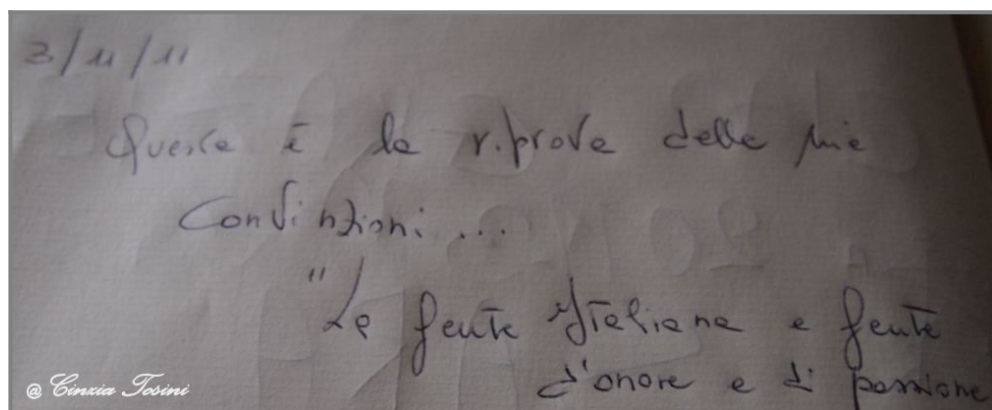 3/11/11
Questa è la riprova delle mie
Convinzioni...
"La gente Italiana e gente
d'onore e di passione
@ Cinzia Tosini